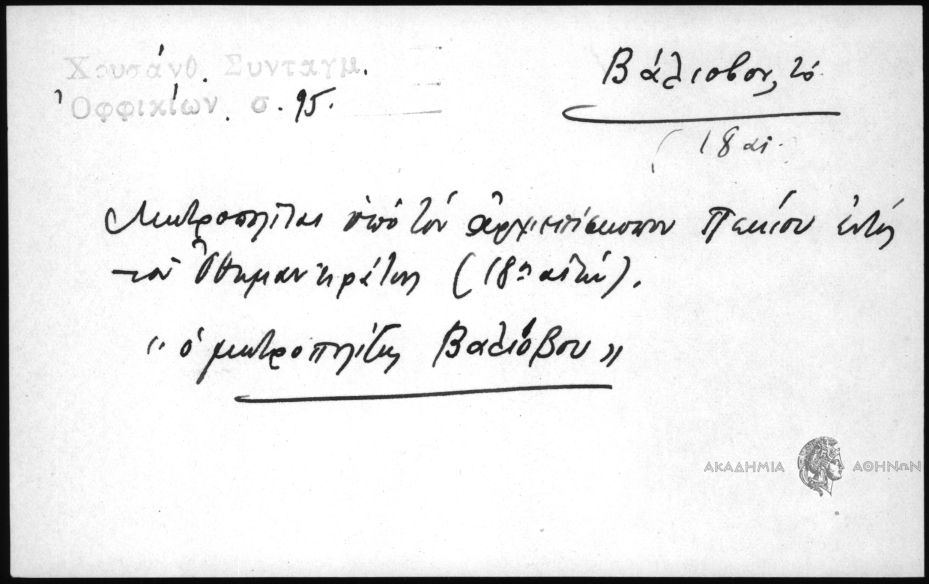 Χρυσάνθ. Συνταγμ.
Ὀφφικίων. σ. 95.
Βάλιοβον, τό
18 αι.
Μητροπολίται ὑπό τόν ἀρχιεπίσκοπον Πεκίου ἐντός
τοῦ Ὀθωμαν. κράτους (18ος αἰών).
"ὁ μητροπολίτης Βαλιόβου"
ΑΚΑΔΗΜΙΑ ΑΘΗΝΩΝ